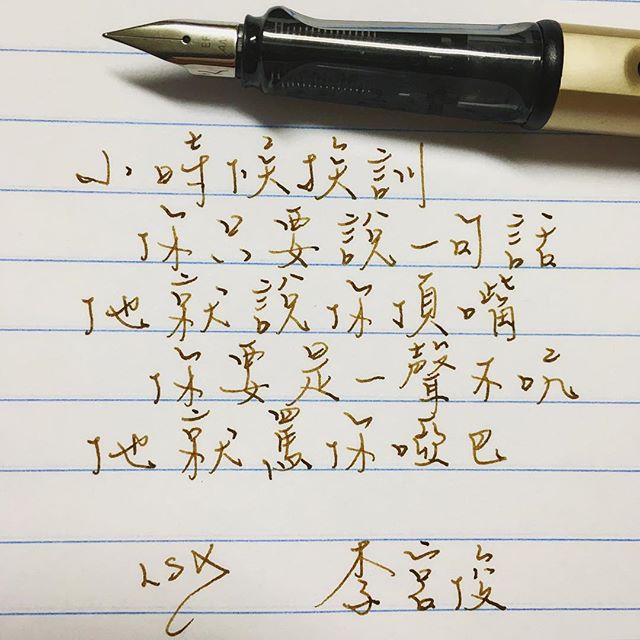 小時候挨訓
你只要說一句話
他就說你頂嘴
你要是一聲不吭
他就罵你啞巴
LSK 李宮俊